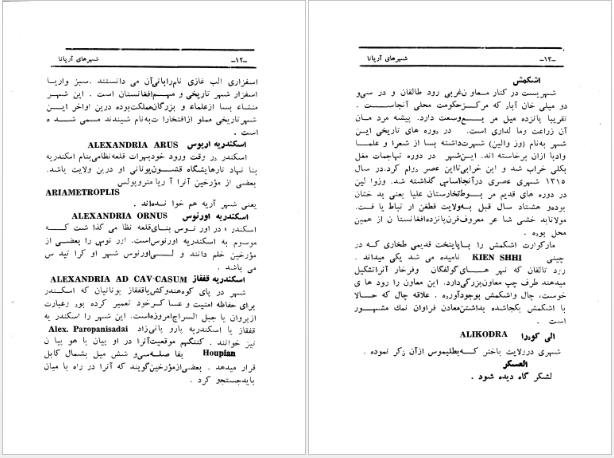 ـ۱۲ـ شهرهای آریانا
اسفزاری الب غازی نام رایانی آن می دانستند . سبز واریا
اسفزار شهر تاریخی و مهم افغانستان است . این شهر
منشاء بسا ازعلماء و بزرگان مملکت بوده درین اواخر این
شهر تاریخی مملو ازافتخارات به نام شیندند مسمی شده
است .
اسکندریه اریوس ALEXANDRIA ARUS
اسکندر در وقت ورود خود بهرات قلعه نظامی بنام اسکندریه
بنا نهاد تارهایشگاه قشون یونانی او درین ولایت باشد.
بعضی از مؤرخین آنرا آریا متروپولس
ARIAMETROPLIS
یعنی شهر آریه هم خوانده اند .
اسکندریه اورنوس ALEXANDRIA ORNUS
اسکندر در اورنوس بنای قلعه نظامی گذاشت که
موسوم به اسکندریه اورنوس است. اورنوس را بعضی از
مؤرخین خلم دانند و لی اورنوس شهر او کرا تیدس
می باشد .
اسکندریه قفقاز ALEXANDRIA AD CAV·CASUM
شهر در پای کوه هندوکش یاقفقاز یونانیان که اسکندر
برای حفاظه امنیت و عساکر خود تعمیر کرده بود وعبارت
ازپروان یا جبل السراج امروزه است. این شهر را اسکندریه
قفقاز یا اسکندریه پاروپانی زاد Alex. Paropanisadai
نیز خوانند . کننگهم موقعیت آنرا در اوپیان یا هوپیان
Houpian بفاصله سی و شش میل بشمال کابل
قرار میدهد . بعضی ازمؤرخین گویند که آنرا در راه بامیان
باید جستجو کرد .
ـ۱۳ـ شهرهای آریانا
اشکمش
شهریست در کنار معاون غربی رود طالقان و در سی و
دو میلی خان آباد که مرکز حکومت محلی آنجاست .
تقریبا پانزده میل مربع وسعت دارد. پیشه مردمان
آن زراعت وما لداری است. در دوره های تاریخی این
شهر به نام (وز والین) شهرت داشته بسا از شعرا و علما
وادبا ازان برخاسته اند. این شهر در دوره تهاجمات مغل
بکلی خراب شد و این خرابی تا این عصر دوام کرد.در سال
۱۳۱۵ شهری عصری در آنجا اساس گذاشته شد. وزوالین
در دوره های قدیم مربوط تخارستان علیا یعنی بدخشان
بوده و هشتاد سال قبل به ولایت قطغن ارتباط یافت.
مولانا به خشی شاعر معروف قرن پانزده افغانستان از همین
محل بوده .
مارکوارت اشکمش را باپایتخت قدیمی طخاری که در
چینی KIEN SHHI نامیده می شد یکی میداند .
رود تالقان که نهرهای گولفگان و فرخار آنرا تشکیل
میدهند طرف چپ معاون بزرگی دارد. این معاون را رودهای
خوست، چال و اشکمش بوجود آورده . علاقه چال که حالا
با اشکمش یکجا شده بداشتن معادن فراوان نمک مشهور
است .
الی کودرا ALIKODRA
شهری در ولایت باختر که بطلیموس ازآن ذکر نموده .
الصسکر
لشکر گاه دیده شود .